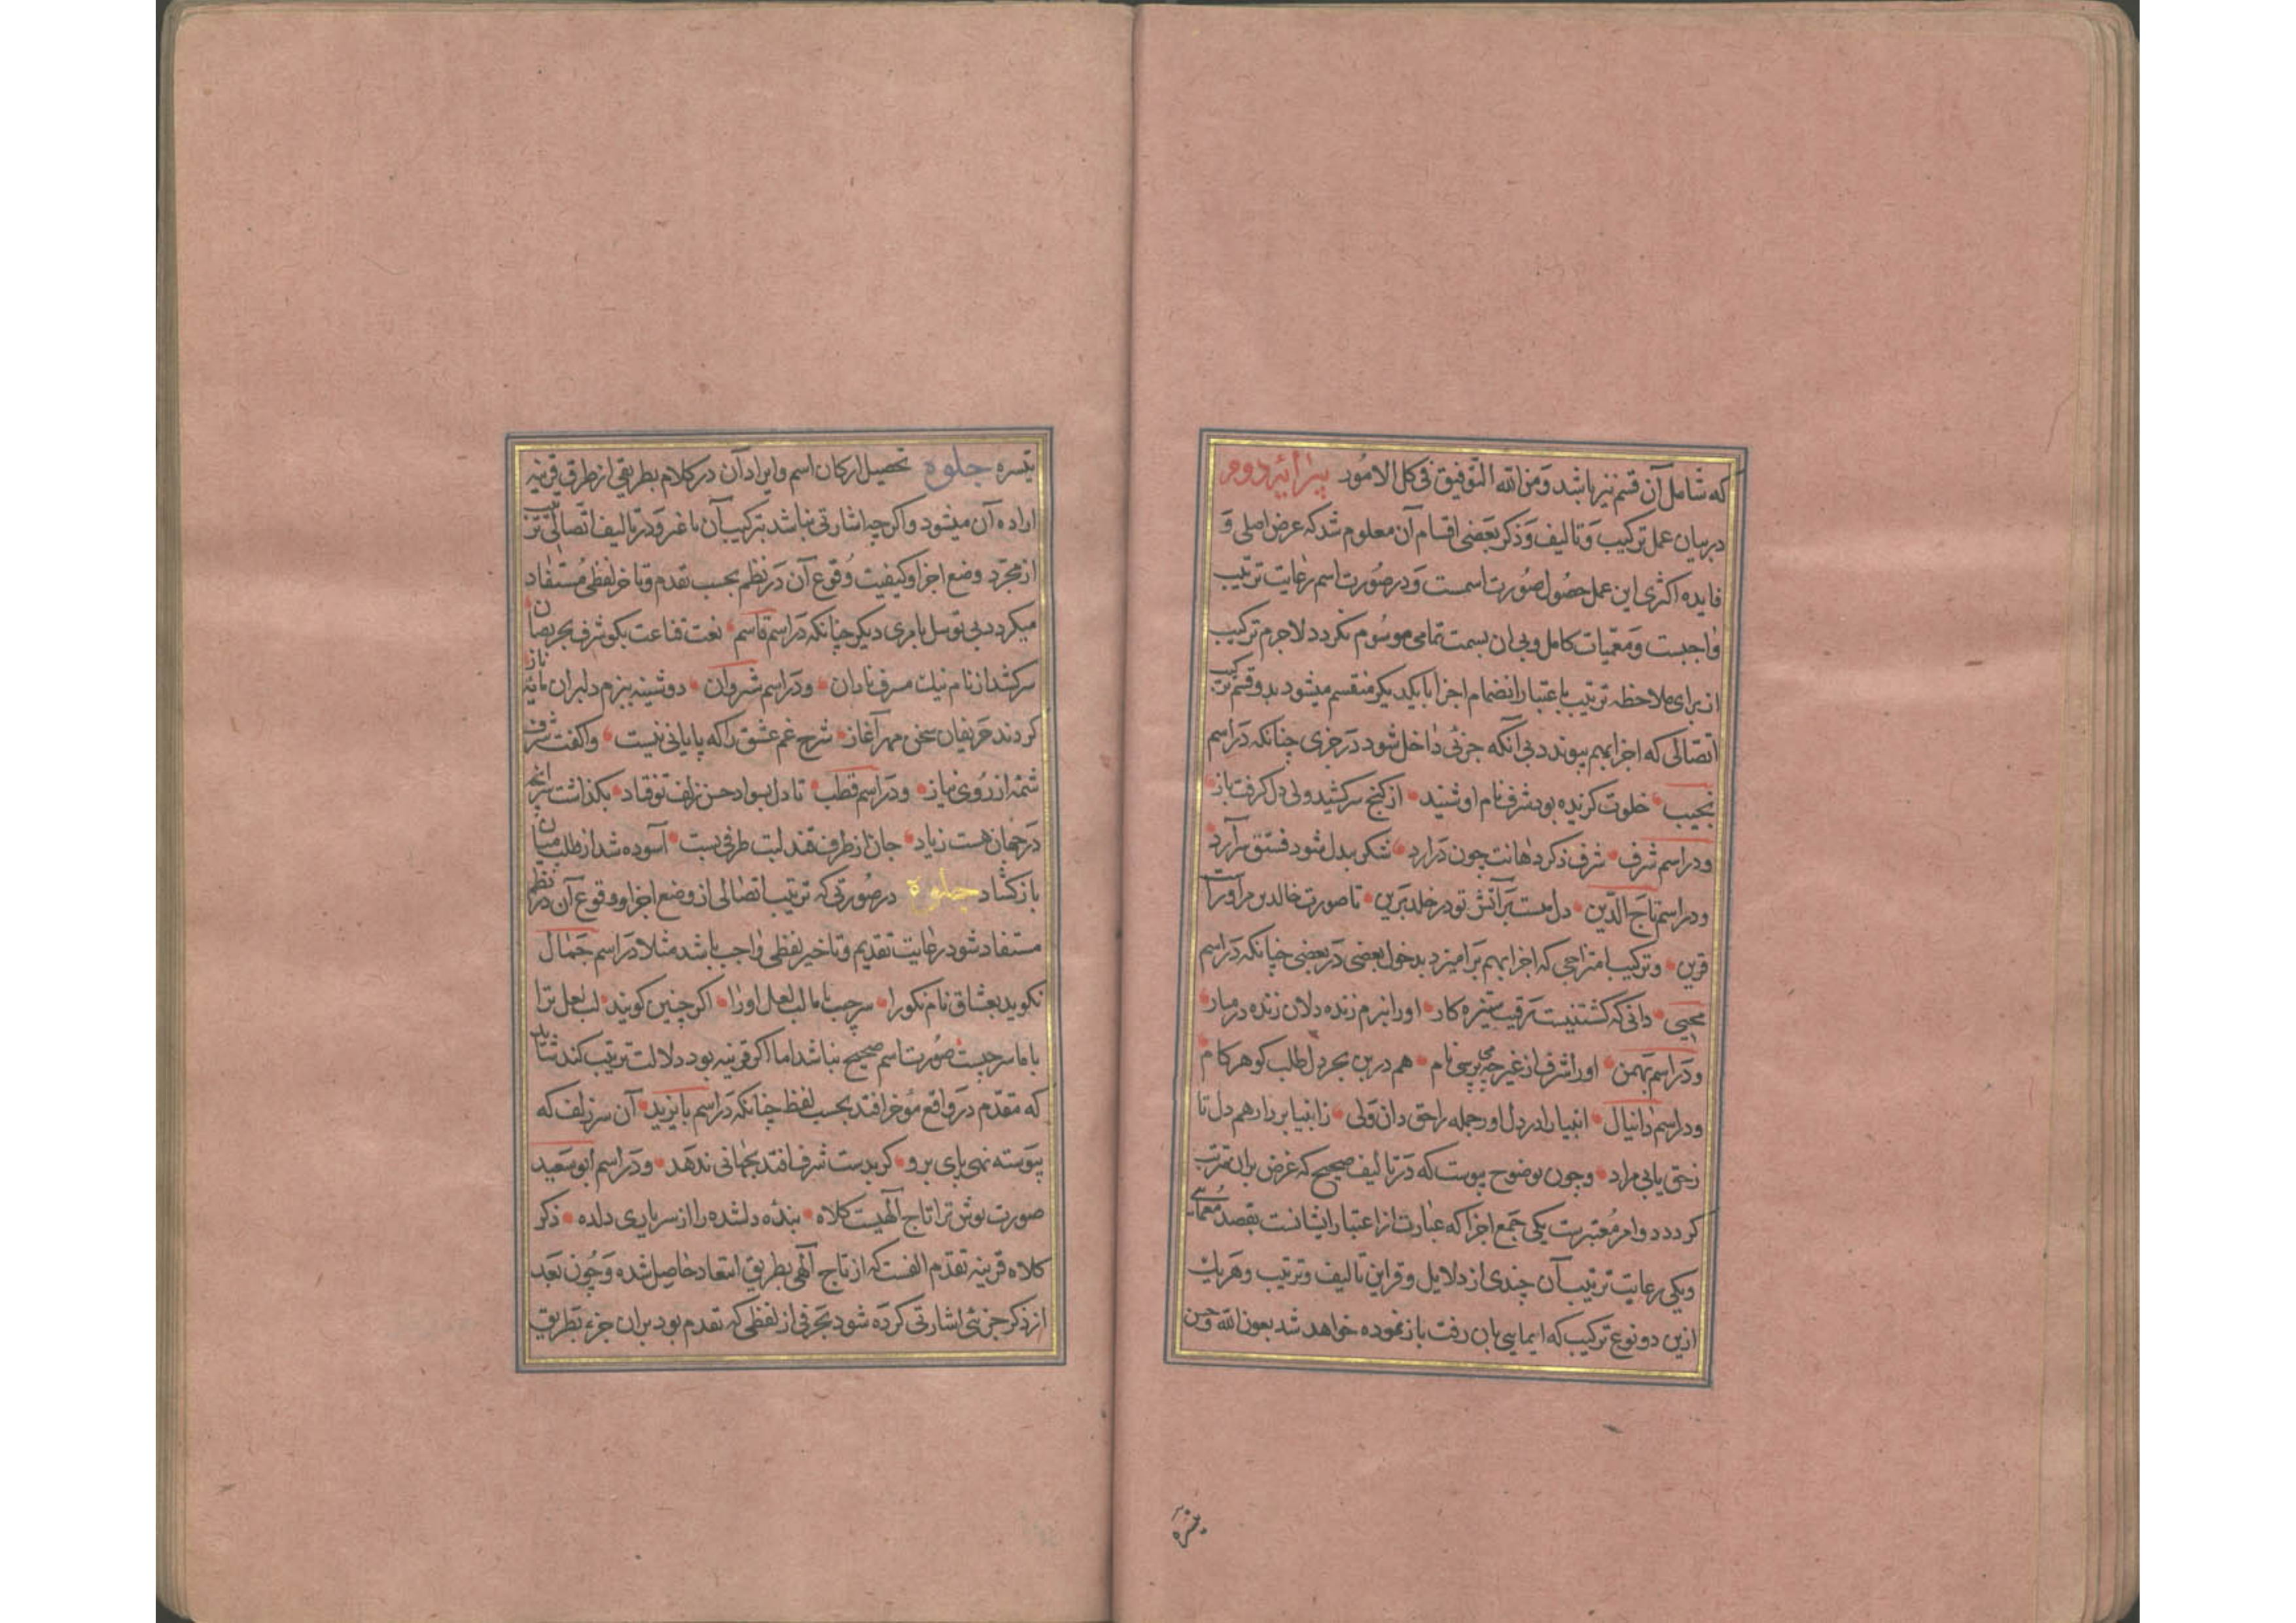 که شامل آن قسم نیز باشد وَمن الله التوفیق فی کل الامُور پیرایهٔ دوم
در بیان عمل ترکیب وَ تالیف وَ ذکر بَعضی اقسام آن معلوم شد که غرض اصلی وَ
فایده اکثری این عمل حصُول صُورت اسمست وَ در صُورت اسم رعایت ترتیب
واجبست وَ معمّیات کامل و بی ان بسمت تمامی موسُوم نکردد لاجرم ترکیب
از برای ملاحظه ترتیب باعتبار انضمام اجزا بایکدیکر منقسم میشود بدو قسم ترکیب
اتصالی که اجزا بهم پیوندد بی آنکه جزئی داخل شود دَر جزی چنانکه دَر اسم
نجیب خلوت کزیده بود شرف نام او شنید از کنج سر کشید ولی دل کرفت باز
ودر اسم شرف شرف ذکر دهانت چون دَر ارد شکر بدل شود فستق سر آرد
ودر اسم تاج الدّین دل مست بَر آتش تو در خلد بَرین تا صورت خالدین مر آورا
قرین وترکیب امتزاجی که اجزا بهم بَر امیزد بدخول بعضی دَر بعضی چنانکه دَر اسم
محیی دانی که کشتنیست رَقیب ستیزه کار اورا ببزم زنده دلان زنده در میار
ودَر اسم بَهمن اورا شرف از غیر چه می پرسی نام هم درین بحر دل طلب کوهر کام
ودر اسم دانیال انبیا را در دل اور جمله را حق دان وَلی ز انبیا بردار هم دل تا
زحق یابی مراد وچون بوضوح پیوست که دَر تالیف صحیح که غرض بران مترتب
کردد دو امر مُعتبرست یکی جَمع اجزا که عبارت از اعتبار ایشانست بقصد مُعمایی
ویکی رعایت ترتیب آن چندی از دلایل وقراین تالیف وترتیب وهَر یک
ازین دو نوع ترکیب که ایمایی بان رفت باز نموده خواهد شد بعون الله وحسن
تیسره
تیسره جلوه تحصیل ارکان اسم وایراد آن در کلام بطریقی از طرق قرینه
اراده آن میشود واکر چه اشارتی نباشد بترکیب آن باغیر وَدر تالیف اتصالی ترتیب
از مجرّد وضع اجزا وکیفیت وُقوع آن دَر نظم بحسب تقدم وتاخر لفظی مُستفاد
میکردد بی توسل بامری دیکر چنانکه دَر اسم قاسم نعت قناعت بکو شرف بحریصان
سر کشد از نام نیک مسرف نادان ودَر اسم شروان دوشینه ببزم دلبران مایه ناز
کردند حَریفان سخن مهر آغاز شرح غم عشق را که پایانی نیست واکفت شرف
شمّه از رُوی نیاز ودَر اسم قطب تا دل بسواد حسن زلف تو فتاد بکذاشت هر آنچه
دَر جهان هست زیاد جان از طرف قند لبت طرفی بست آسوده شد از طلب میان
باز کشاد جلوه در صُورتی که ترتیب اتصالی از وضع اجزا ووقوع آن در نظم
مستفاد شود رعایت تقدیم وتاخیر لفظی واجب باشد مثلا دَر اسم جَمال
نکوید بعشاق نام نکورا سرجیب باما لب لعل اورا اکر چنین کویند لب لعل ترا
باما سرجیبست صُورت اسم صحیح نباشد اما اکر قرینه بود دلالت ترتیب کند شاید
که مقدّم دَر واقع مُوخر افتد بحسب لفظ چنانکه دَر اسم بایزید آن سر زلف که
پیَوسته نهی پای برو کر بدست شرف افتد بجهانی ندهَد ودَر اسم ابو سَعید
صورت بوش ترا تاج آلهیست کلاه بندهٔ دلشده را از سر یاری دل ده ذکر
کلاه قرینه تقدم الفست که از تاج آلهی بطریق استعاد حاصل شده وَچُون بَعد
از ذکر جزئی اشارتی کرده شود بحَرفی از لفظی که تقدم بود بران جزء بَطریق